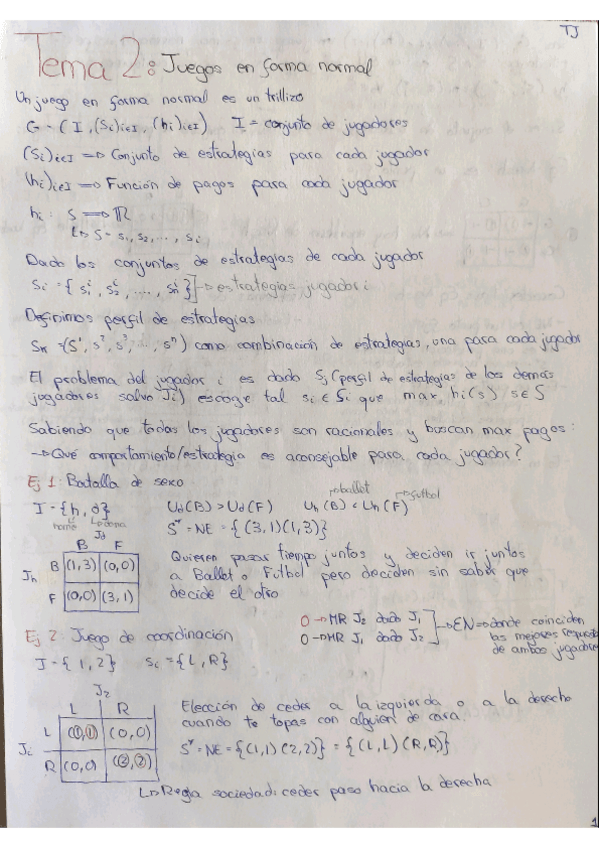 TJ
Tema 2: Juegos en forma normal
Un juego en forma normal es un trillizo
G = (I, (Si)i∈I, (hi)i∈I) I = conjunto de jugadores
(Si)i∈I => Conjunto de estrategias para cada jugador
(hi)i∈I => Función de pagos para cada jugador
hi: S => R
L> S = s1, s2, ..., si
Dado los conjuntos de estrategias de cada jugador
Si = { s1^i, s2^i, ...., sn^i } ] -> estrategias jugador i
Definimos perfil de estrategias
Sn = (s^1, s^2, s^3, ..., s^n) como combinación de estrategias, una para cada jugador
El problema del jugador i es dado Sj (perfil de estrategias de los demás
jugadores salvo Ji) escoge tal si ∈ Si que max hi(s) s∈S
Sabiendo que todos los jugadores son racionales y buscan max pagos:
-> Qué comportamiento/estrategia es aconsejable para cada jugador?
Ej 1: Batalla de sexo
I = {h, d} Ud(B) > Ud(F) Uh(B) < Uh(F)
ballet futbol
S* = NE = {(3,1)(1,3)}
Jd
B F
Jh
B (1,3) (0,0)
F (0,0) (3,1)
Quieren pasar tiempo juntos y deciden ir juntos
a Ballet o Futbol pero deciden sin saber que
decide el otro
O -> MR J2 dado J1
O -> MR J1 dado J2
-> EN => donde coinciden
las mejores respuestas
de ambos jugadores
Ej 2: Juego de coordinación
I = {1, 2} Si = {L, R}
J2
L R
Ji
L (1,1) (0,0)
R (0,0) (2,2)
Elección de ceder a la izquierda o a la derecha
cuando te topas con alguien de cara
S* = NE = {(1,1)(2,2)} = {(L,L)(R,R)}
L> Regla sociedad: ceder paso hacia la derecha
1